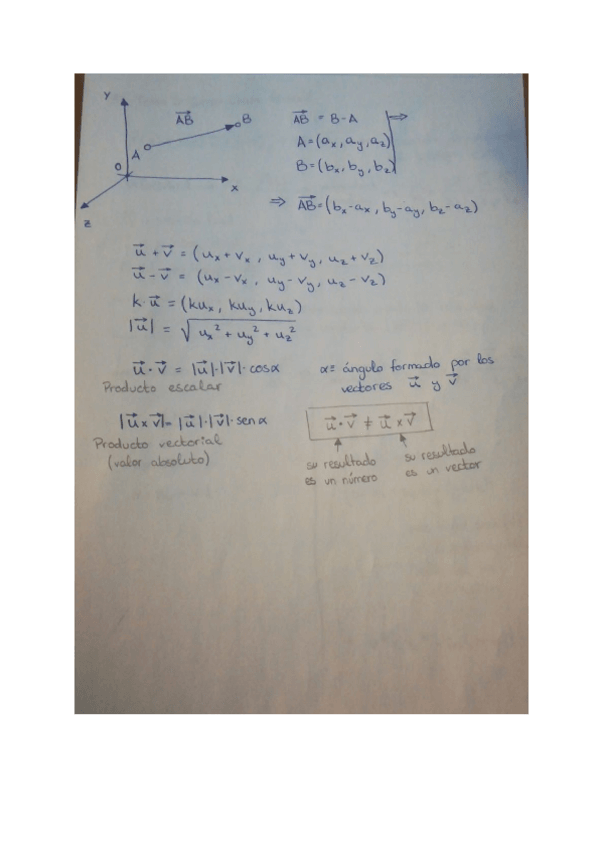 y
AB⃗
B
A
O
x
z
AB⃗ = B-A
A=(aₓ, a_y, a_z)
B=(bₓ, b_y, b_z)
⇒
⇒ AB⃗=(bₓ-aₓ, b_y-a_y, b_z-a_z)
u⃗ + v⃗ = (uₓ+vₓ, u_y+v_y, u_z+v_z)
u⃗ - v⃗ = (uₓ-vₓ, u_y-v_y, u_z-v_z)
k·u⃗ = (kuₓ, ku_y, ku_z)
|u⃗| = √(uₓ² + u_y² + u_z²)
u⃗ · v⃗ = |u⃗|·|v⃗|· cosα
Producto escalar
α≡ ángulo formado por los
vectores u⃗ y v⃗
|u⃗ x v⃗|= |u⃗|·|v⃗|· senα
Producto vectorial
(valor absoluto)
u⃗ · v⃗ ≠ u⃗ x v⃗
su resultado
es un número
su resultado
es un vector